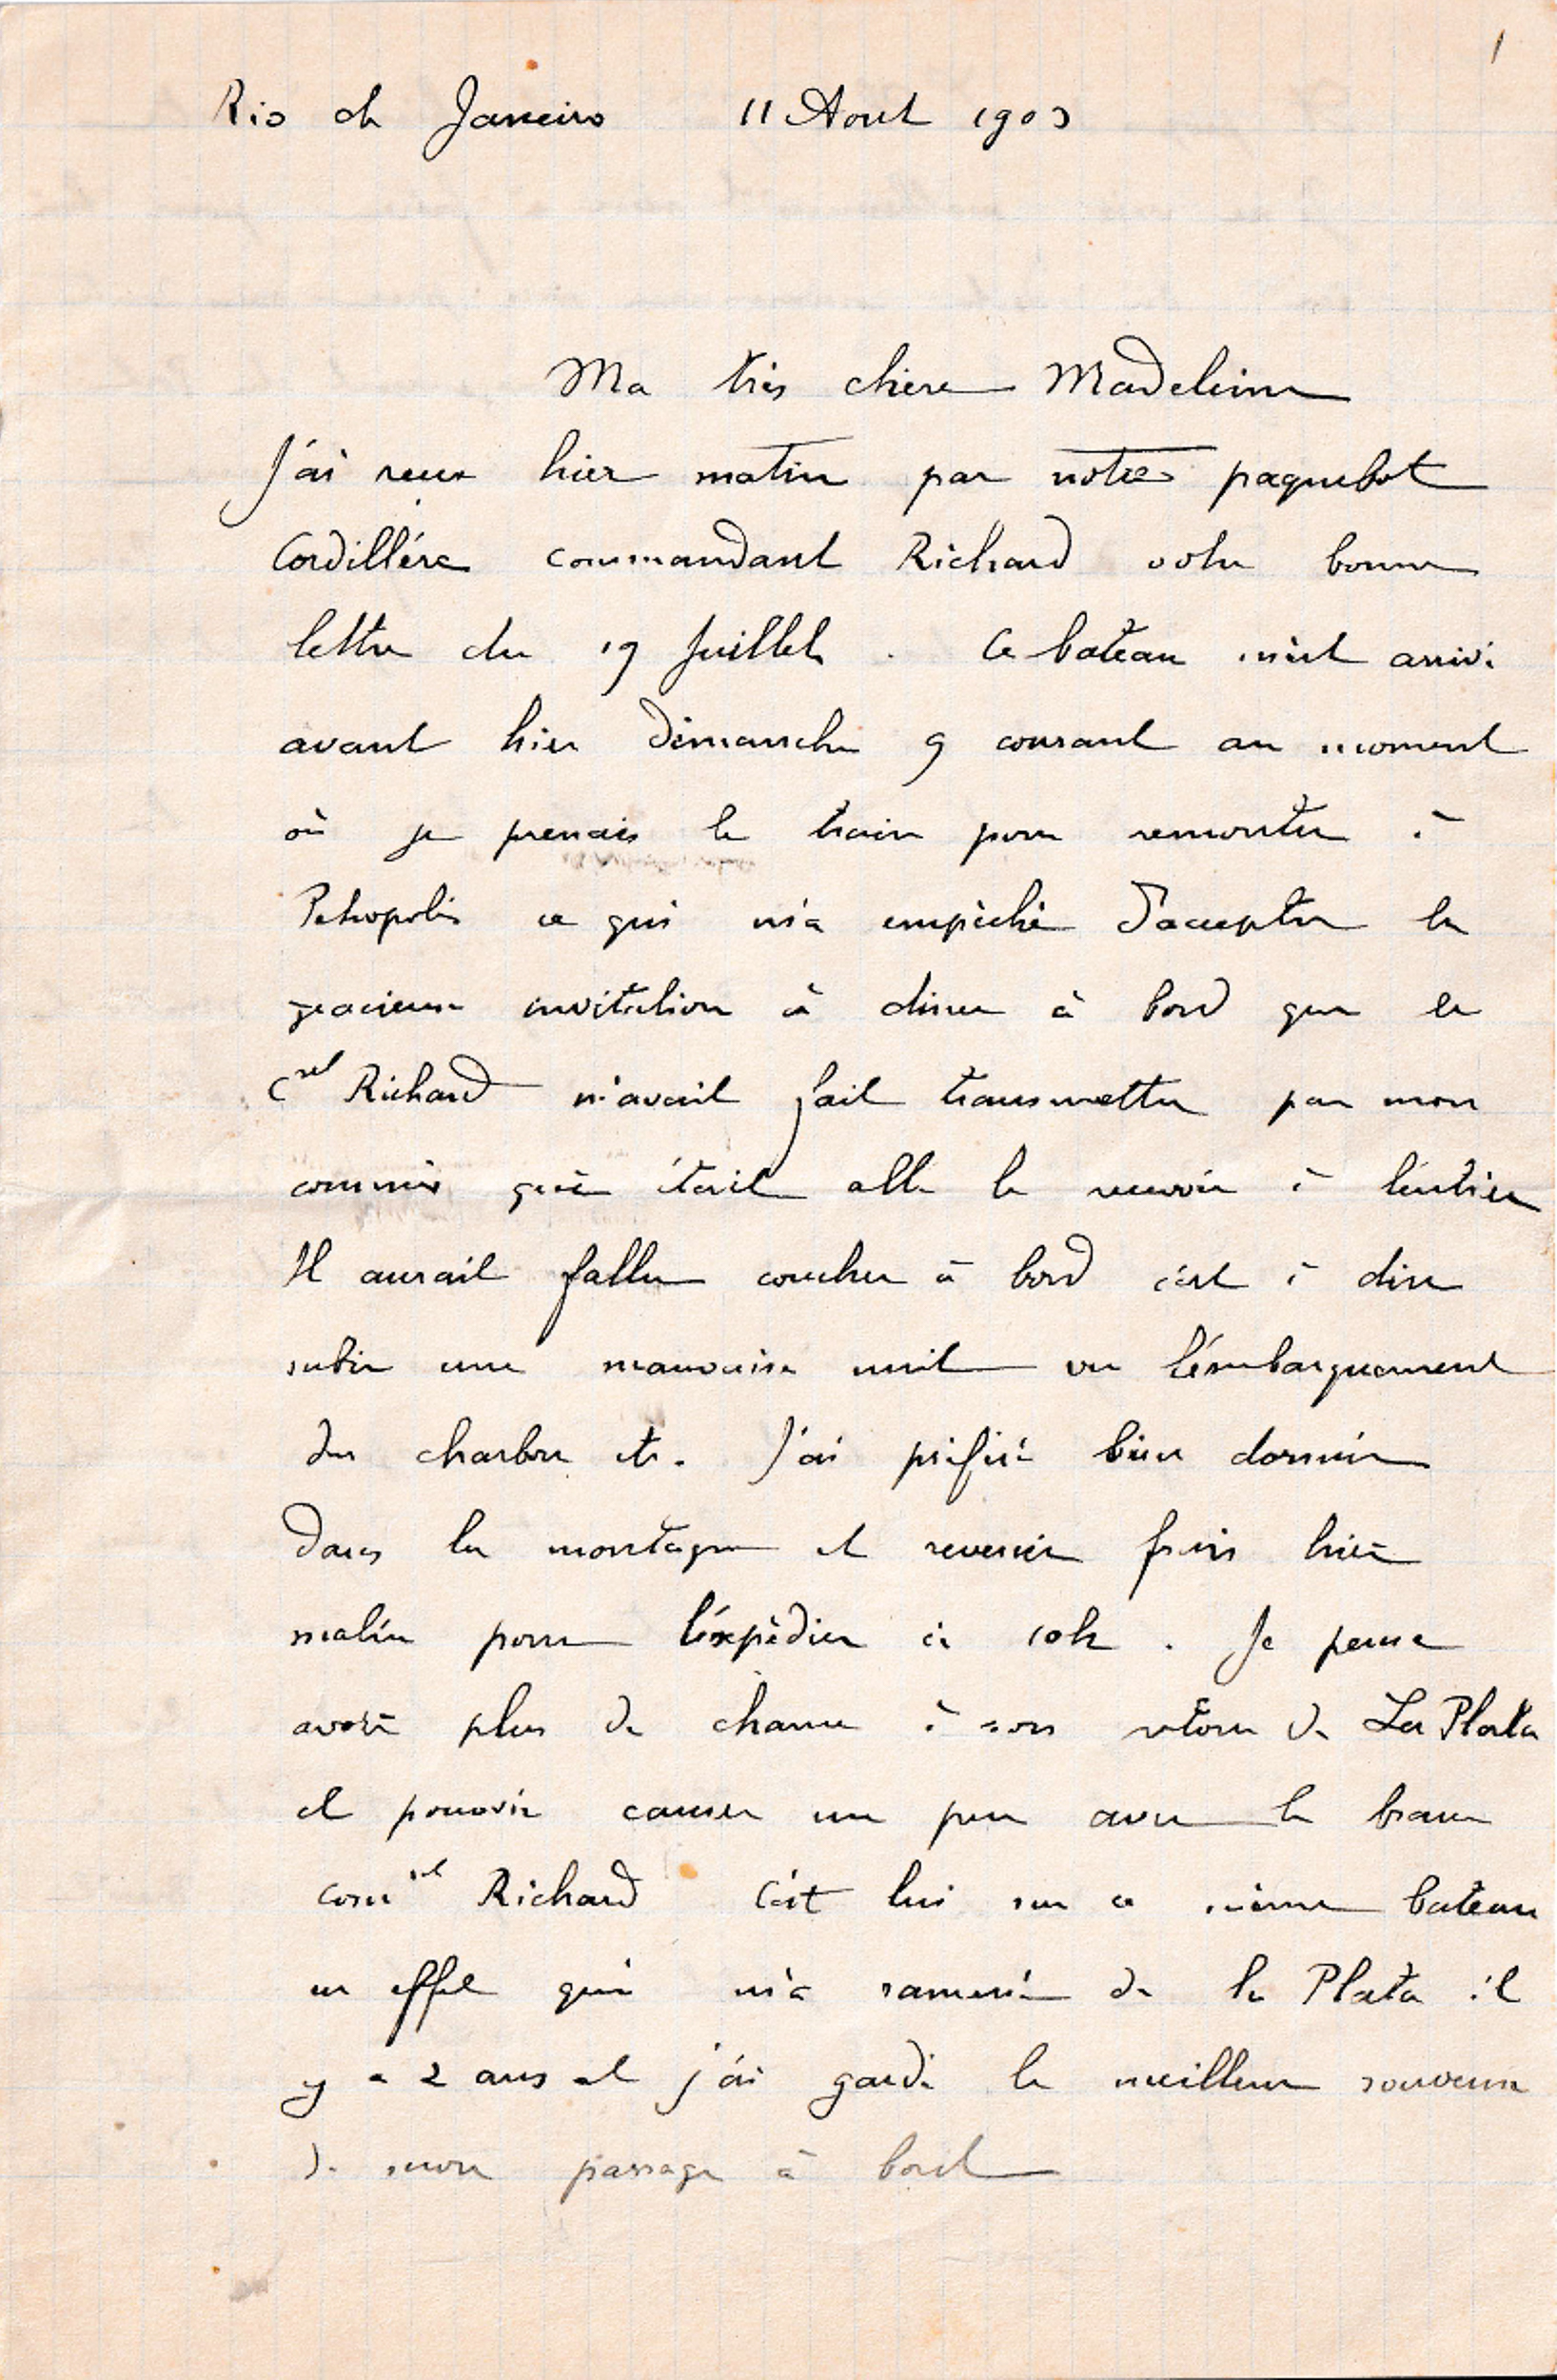 1
Rio de Janeiro 11 Aout 1903
Ma très chère Madeleine
J'ai reçu hier matin par notre paquebot
Cordillére commandant Richard votre bonne
lettre du 19 Juillet. Ce bateau m'est arrivé
avant hier dimanche 9 courant au moment
où je prenais le train pour remonter à
Petropolis ce qui m'a empêché d'accepter la
gracieuse invitation à diner à bord que le
Cnt Richard m'avait fait transmettre par mon
commis qui était allé le recevoir à l'entrée
Il aurait fallu coucher à bord c'est à dire
subir une mauvaise nuit vu l'émbarquement
du charbon etc. J'ai préféré bien dormir
dans la montagne et revenir frais hier
matin pour l'éxpédier à 10h. Je pense
avoir plus de chance à son retour de La Plata
et pouvoir causer un peu avec le brave
comnt Richard C'est lui sur ce même bateau
en effet qui m'a ramené de la Plata il
y a 2 ans et j'ai gardé le meilleur souvenir
de mon passage à bord